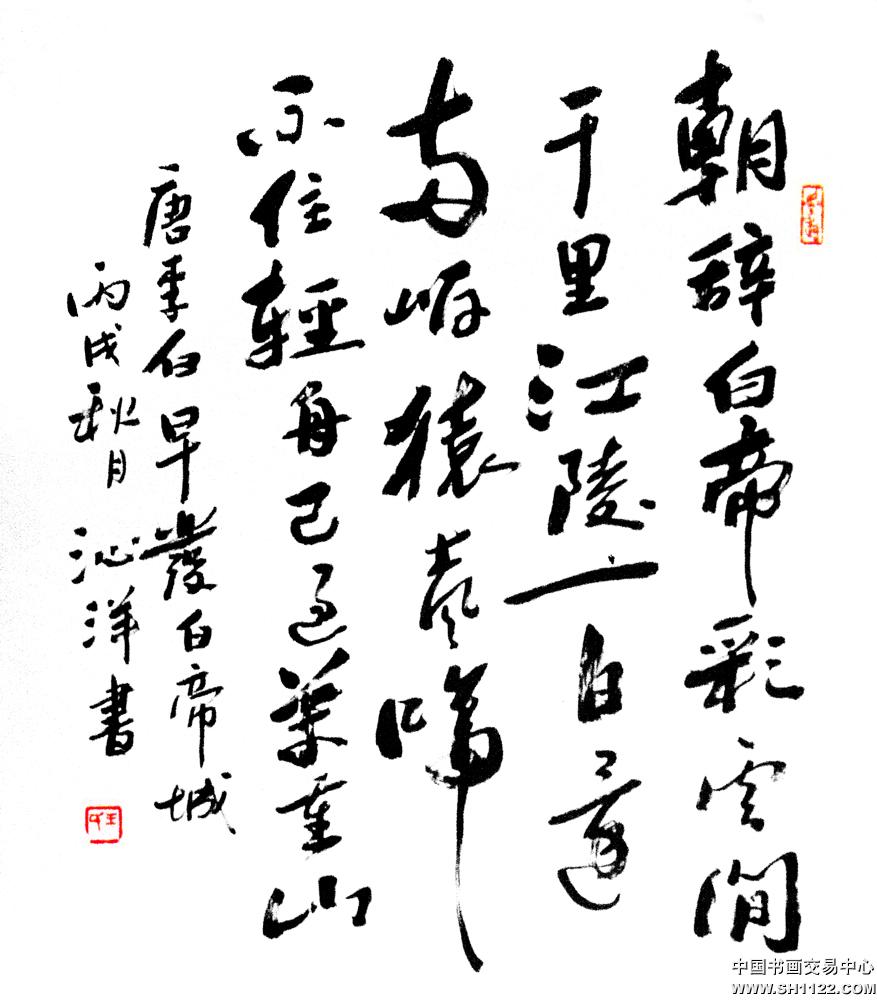 朝辞白帝彩雲間
千里江陵一日還
兩岸猿聲啼
不住輕舟已過萬重山
唐李白早發白帝城
丙戌秋月沁洋書
中国书画交易中心
WWW.SH1122.COM